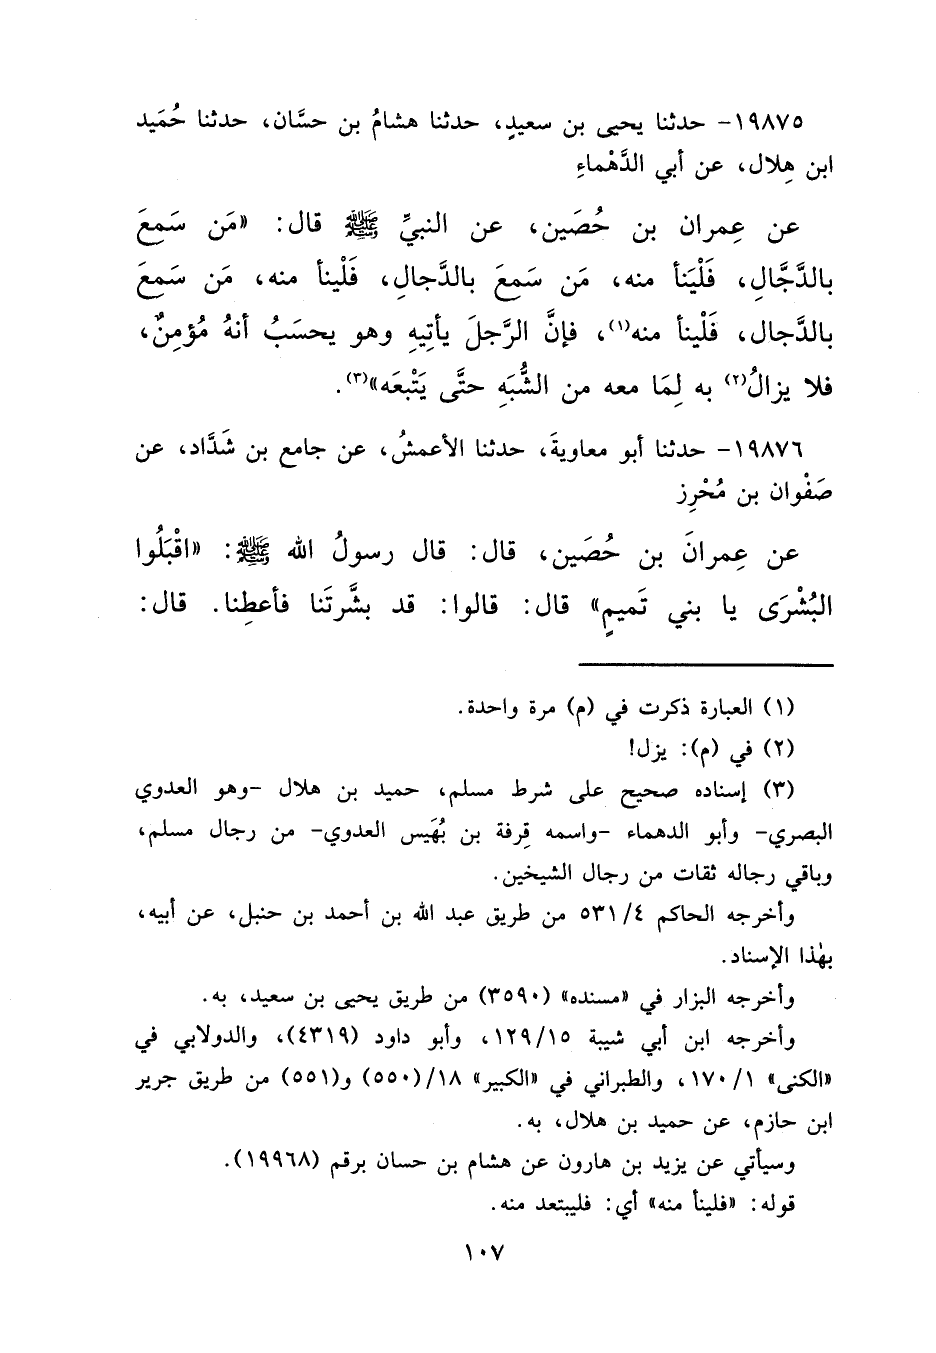 ١٩٨٧٥- حدثنا يحيى بن سعيدٍ، حدثنا هشامُ بن حسَّان، حدثنا حُمَيد
ابن هِلال، عن أبي الدَّهْماءِ
عن عِمران بن حُصَين، عن النبيِّ ﷺ قال: «مَن سَمِعَ
بالدَّجَّالِ، فَلْيَنأ منه، مَن سَمِعَ بالدَّجالِ، فَلْينأ منه، مَن سَمِعَ
بالدَّجال، فَلْينأ منه(١)، فإنَّ الرَّجلَ يأتِيهِ وهو يحسَبُ أنهُ مُؤمِنٌ،
فلا يزالُ(٢) به لِمَا معه من الشُّبَهِ حتَّى يَتْبعَه»(٣).
١٩٨٧٦- حدثنا أبو معاويةَ، حدثنا الأعمشُ، عن جامع بن شَدَّاد، عن
صَفْوان بن مُحْرِز
عن عِمرانَ بن حُصَين، قال: قال رسولُ الله ﷺ: «اقْبَلُوا
البُشْرَى يا بني تَميمٍ» قال: قالوا: قد بشَّرتَنا فأعطِنا. قال:
(١) العبارة ذكرت في (م) مرة واحدة.
(٢) في (م): يزل!
(٣) إسناده صحيح على شرط مسلم، حميد بن هلال -وهو العدوي
البصري- وأبو الدهماء -واسمه قِرفة بن بُهَيس العدوي- من رجال مسلم،
وباقي رجاله ثقات من رجال الشيخين.
وأخرجه الحاكم ٥٣١/٤ من طريق عبد الله بن أحمد بن حنبل، عن أبيه،
بهٰذا الإسناد.
وأخرجه البزار في «مسنده» (٣٥٩٠) من طريق يحيى بن سعيد، به.
وأخرجه ابن أبي شيبة ١٢٩/١٥، وأبو داود (٤٣١٩)، والدولابي في
«الكنى» ١٧٠/١، والطبراني في «الكبير» ١٨/(٥٥٠) و(٥٥١) من طريق جرير
ابن حازم، عن حميد بن هلال، به.
وسيأتي عن يزيد بن هارون عن هشام بن حسان برقم (١٩٩٦٨).
قوله: «فلينأ منه» أي: فليبتعد منه.
١٠٧